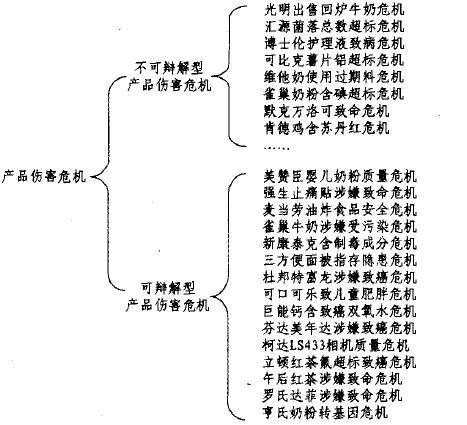 产品伤害危机
不可辩解型
产品伤害危机
光明出售回炉牛奶危机
汇源菌落总数超标危机
博士伦护理液致病危机
可比克薯片铝超标危机
维他奶使用过期料危机
雀巢奶粉含碘超标危机
默克万洛可致命危机
肯德鸡含苏丹红危机
……
可辩解型
产品伤害危机
美赞臣婴儿奶粉质量危机
强生止痛贴涉嫌致命危机
麦当劳油炸食品安全危机
雀巢牛奶涉嫌受污染危机
新康泰克含制毒成分危机
三方便面被指存隐患危机
杜邦特富龙涉嫌致癌危机
可口可乐致儿童肥胖危机
巨能钙含致癌双氧水危机
芬达美年达涉嫌致癌危机
柯达LS433相机质量危机
立顿红茶氟超标致癌危机
午后红茶涉嫌致命危机
罗氏达菲涉嫌致命危机
亨氏奶粉转基因危机